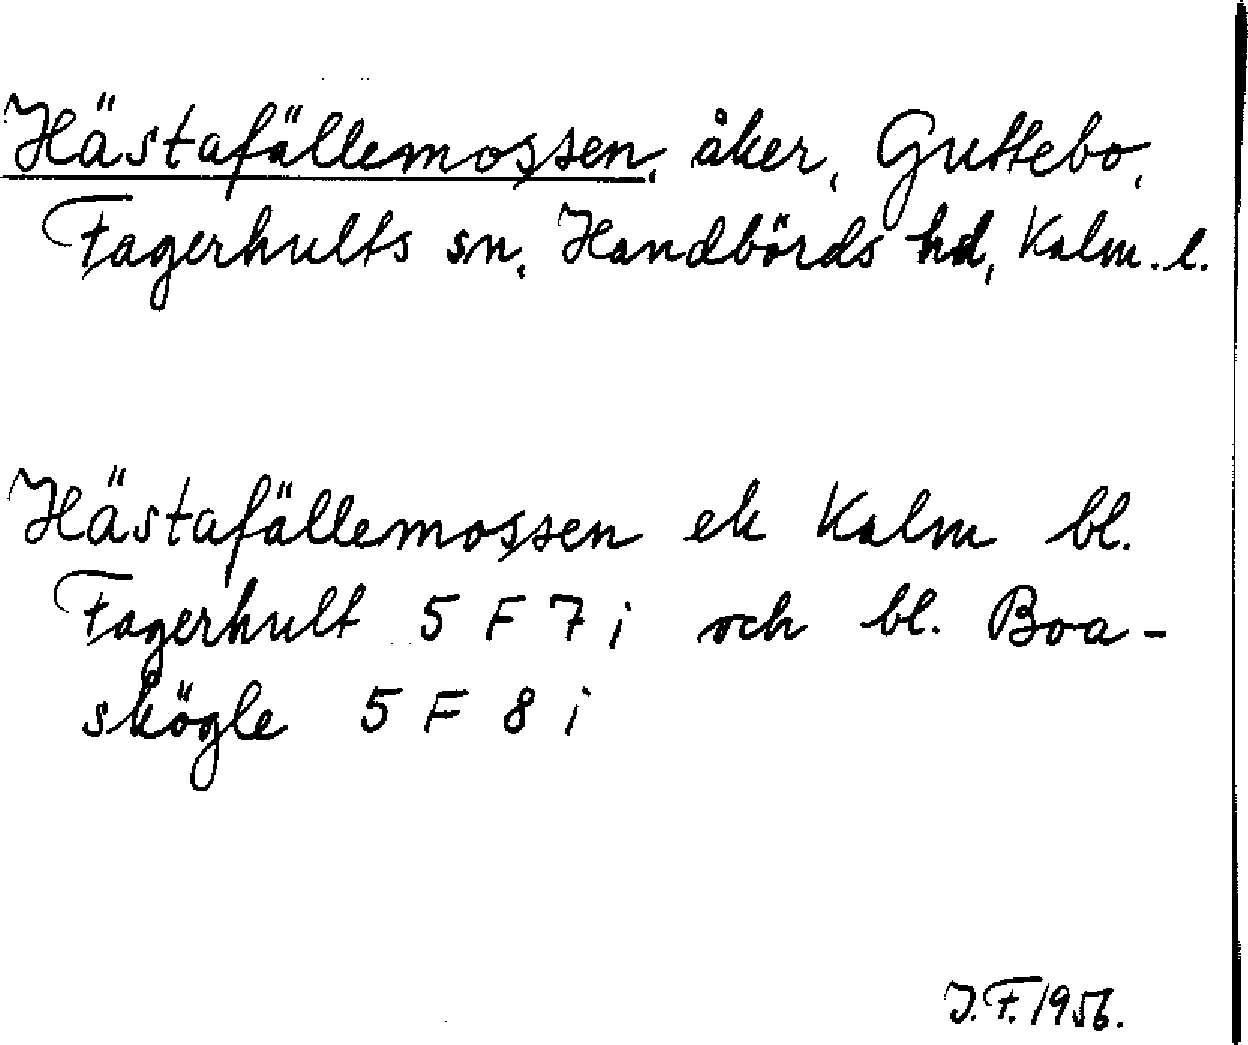 Hästafällemossen, åker, Guttebo,
Fagerhults sn, Handbörds hd, Kalm. l.
Hästafällemossen ek Kalm bl.
Fagerhult 5 F 7 i och bl. Boa-
skögle 5 F 8 i
J. F. 1956.